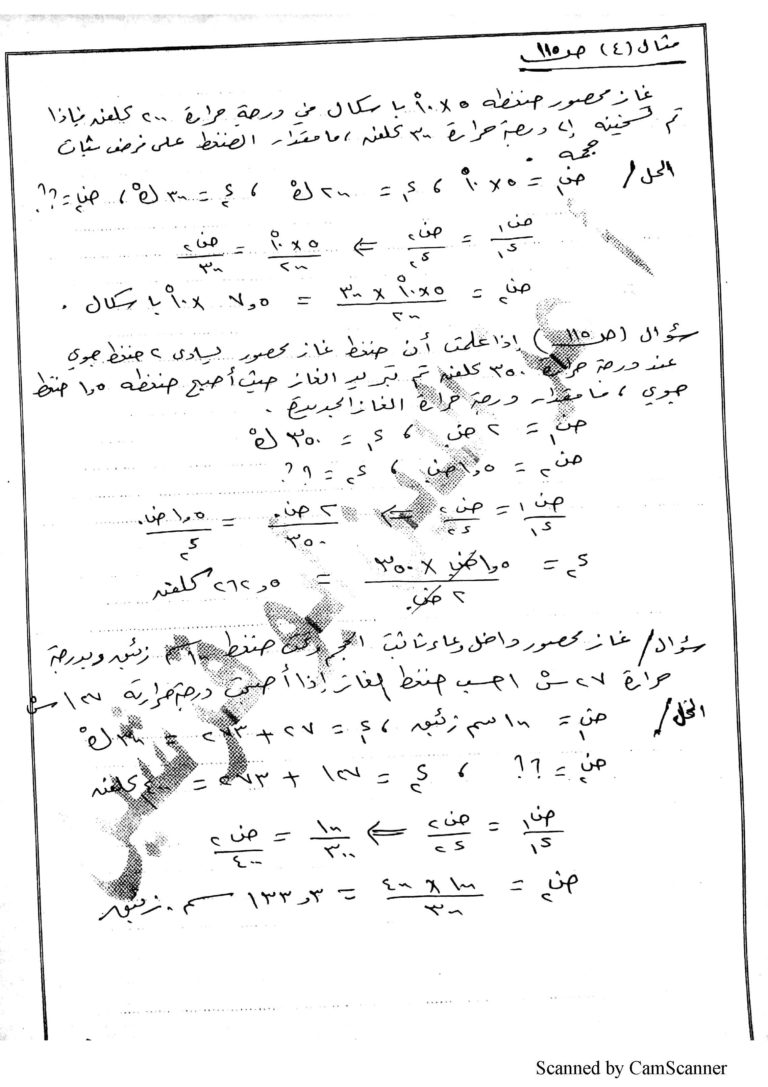 مثال (٤) صـ ١١٥
غاز محصور ضغطه ٥ × ١٠^٥ باسكال في درجة حرارة ٢٠٠ كلفن فإذا
تم تسخينه إلى درجة حرارة ٣٠٠ كلفن ، ما مقدار الضغط على فرض ثبات
حجمه .
الحل / ض١ = ٥ × ١٠^٥ ، ء١ = ٢٠٠ ك° ، ء٢ = ٣٠٠ ك° ، ض٢ = ؟؟
ض١/ء١ = ض٢/ء٢ ⇐ ٥ × ١٠^٥/٢٠٠ = ض٢/٣٠٠
ض٢ = ٥ × ١٠^٥ × ٣٠٠/٢٠٠ = ٧,٥ × ١٠^٥ باسكال .
سؤال (صـ ١١٥) إذا علمت أن ضغط غاز محصور يساوي ٢ ضغط جوي
عند درجة حرارة ٣٥٠ كلفن تم تبريد الغاز حيث أصبح ضغطه ١,٥ ضغط
جوي ، فما مقدار درجة حرارة الغاز الجديدة .
ض١ = ٢ ض. ، ء١ = ٣٥٠ ك°
ض٢ = ١,٥ ض. ، ء٢ = ؟؟
ض١/ء١ = ض٢/ء٢ ⇐ ٢ ض./٣٥٠ = ١,٥ ض./ء٢
ء٢ = ١,٥ ض. × ٣٥٠/٢ ض. = ٢٦٢,٥ كلفن
سؤال / غاز محصور داخل وعاء ثابت الحجم وتحت ضغط ١٠٠ سم زئبق وبدرجة
حرارة ٢٧ س احسب ضغط الغاز إذا أصبحت درجة حرارته ١٢٧ س
الحل / ض١ = ١٠٠ سم زئبق ، ء١ = ٢٧ + ٢٧٣ = ٣٠٠ ك°
ض٢ = ؟؟ ، ء٢ = ١٢٧ + ٢٧٣ = ٤٠٠ كلفن
ض١/ء١ = ض٢/ء٢ ⇐ ١٠٠/٣٠٠ = ض٢/٤٠٠
ض٢ = ١٠٠ × ٤٠٠/٣٠٠ = ١٣٣,٣ سم . زئبق
Scanned by CamScanner